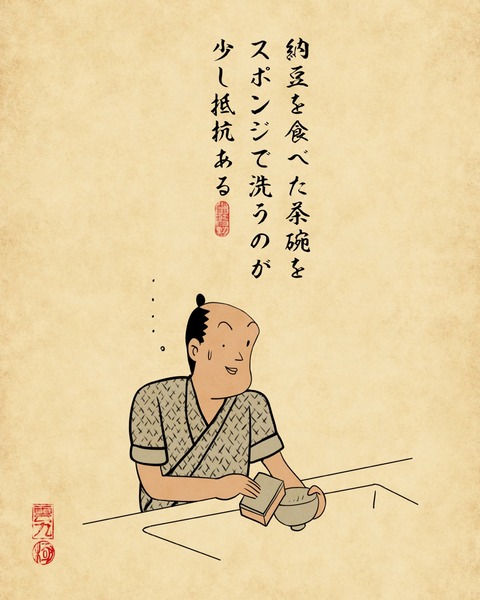 納豆を食べた茶碗を
スポンジで洗うのが
少し抵抗ある